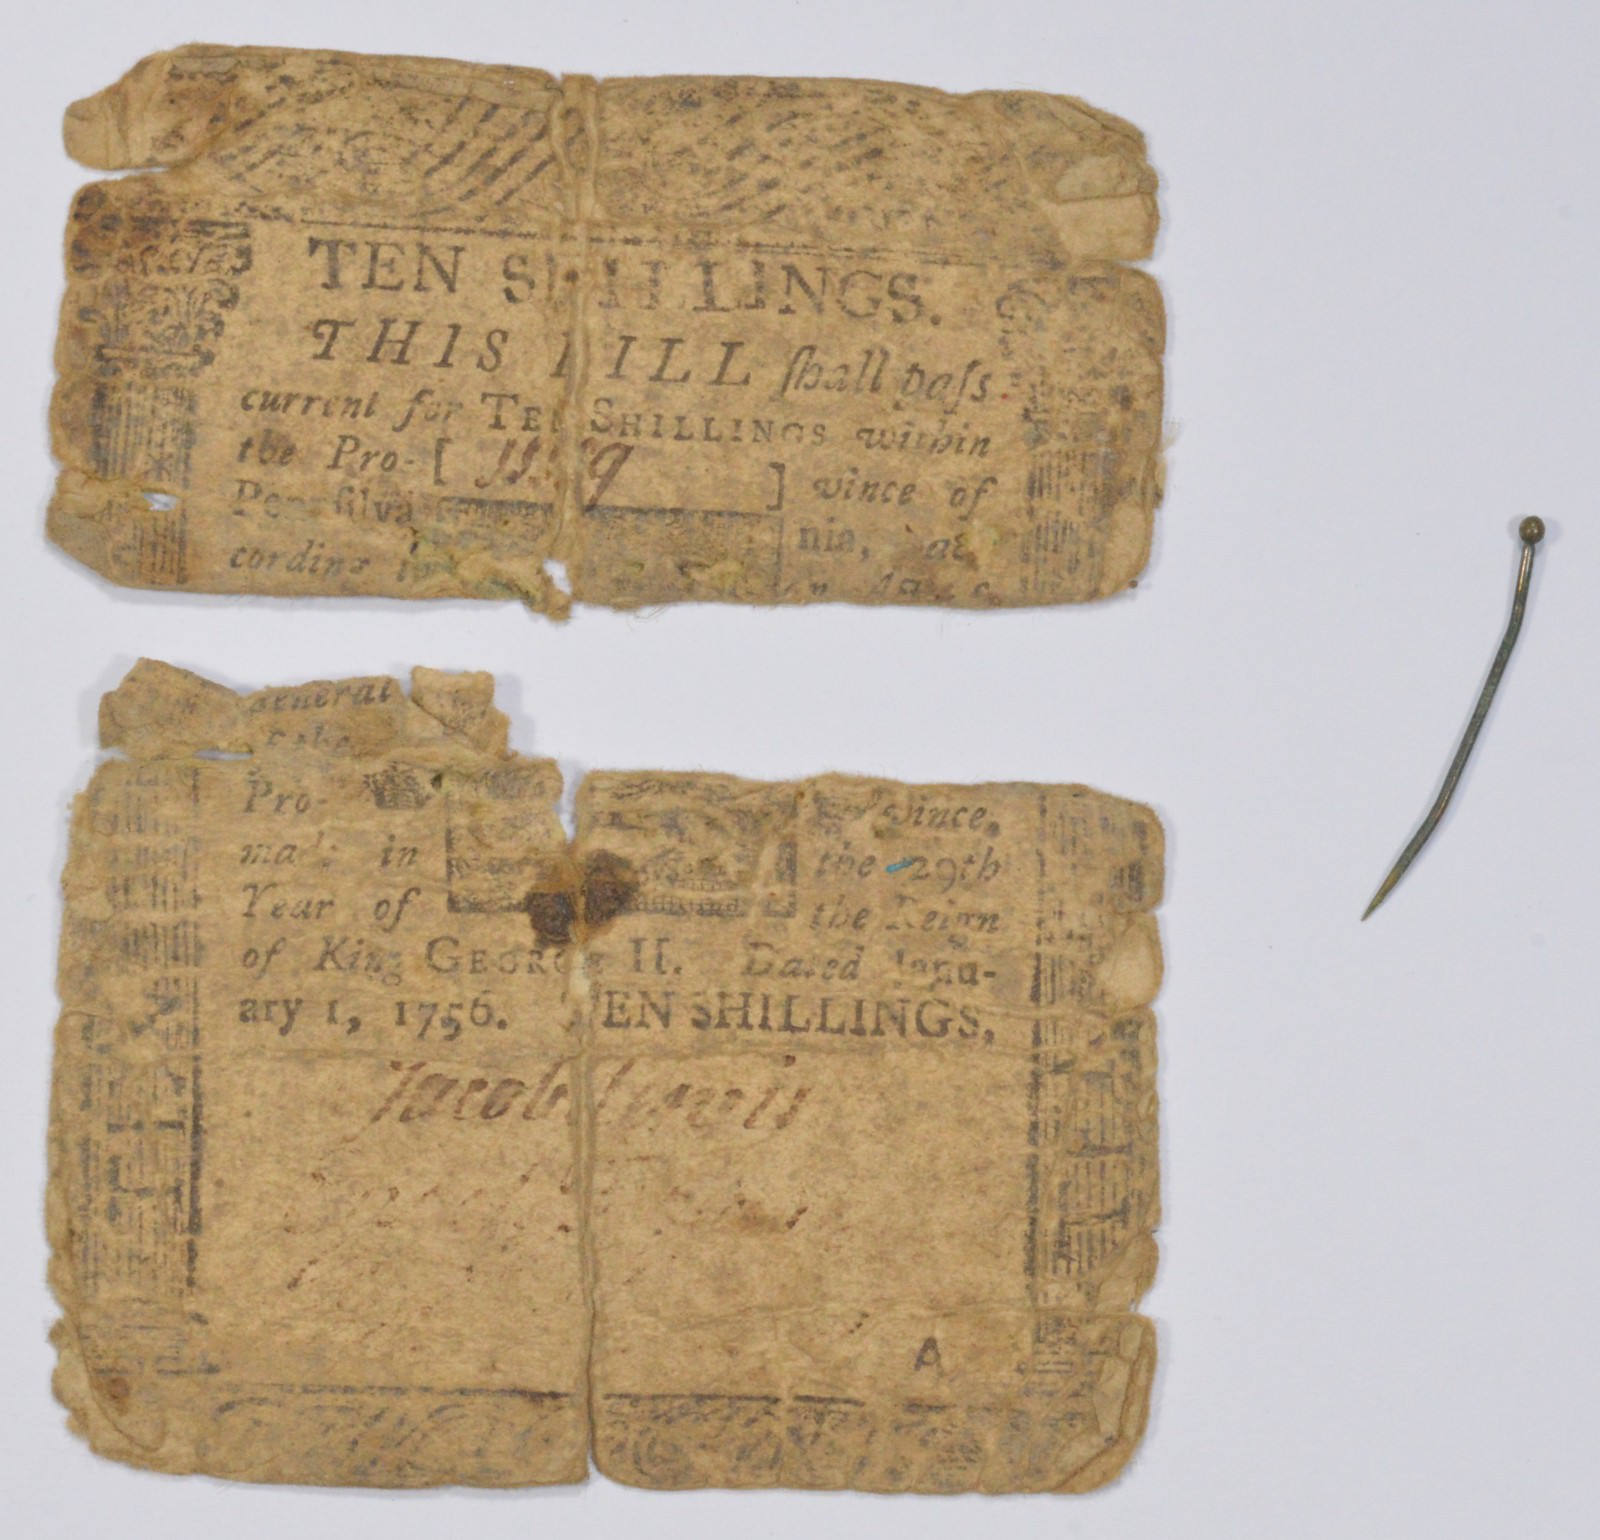 TEN SHILLINGS.
THIS BILL ſhall paſs
current for TEN SHILLINGS within
the Pro- [ ] vince of
Pennſilva nia, ac
cording
general
Pro- vince,
made in the 29th
Year of the Reign
of King GEORGE II. Dated Janu-
ary 1, 1756. TEN SHILLINGS,
Jacob Lewis
A